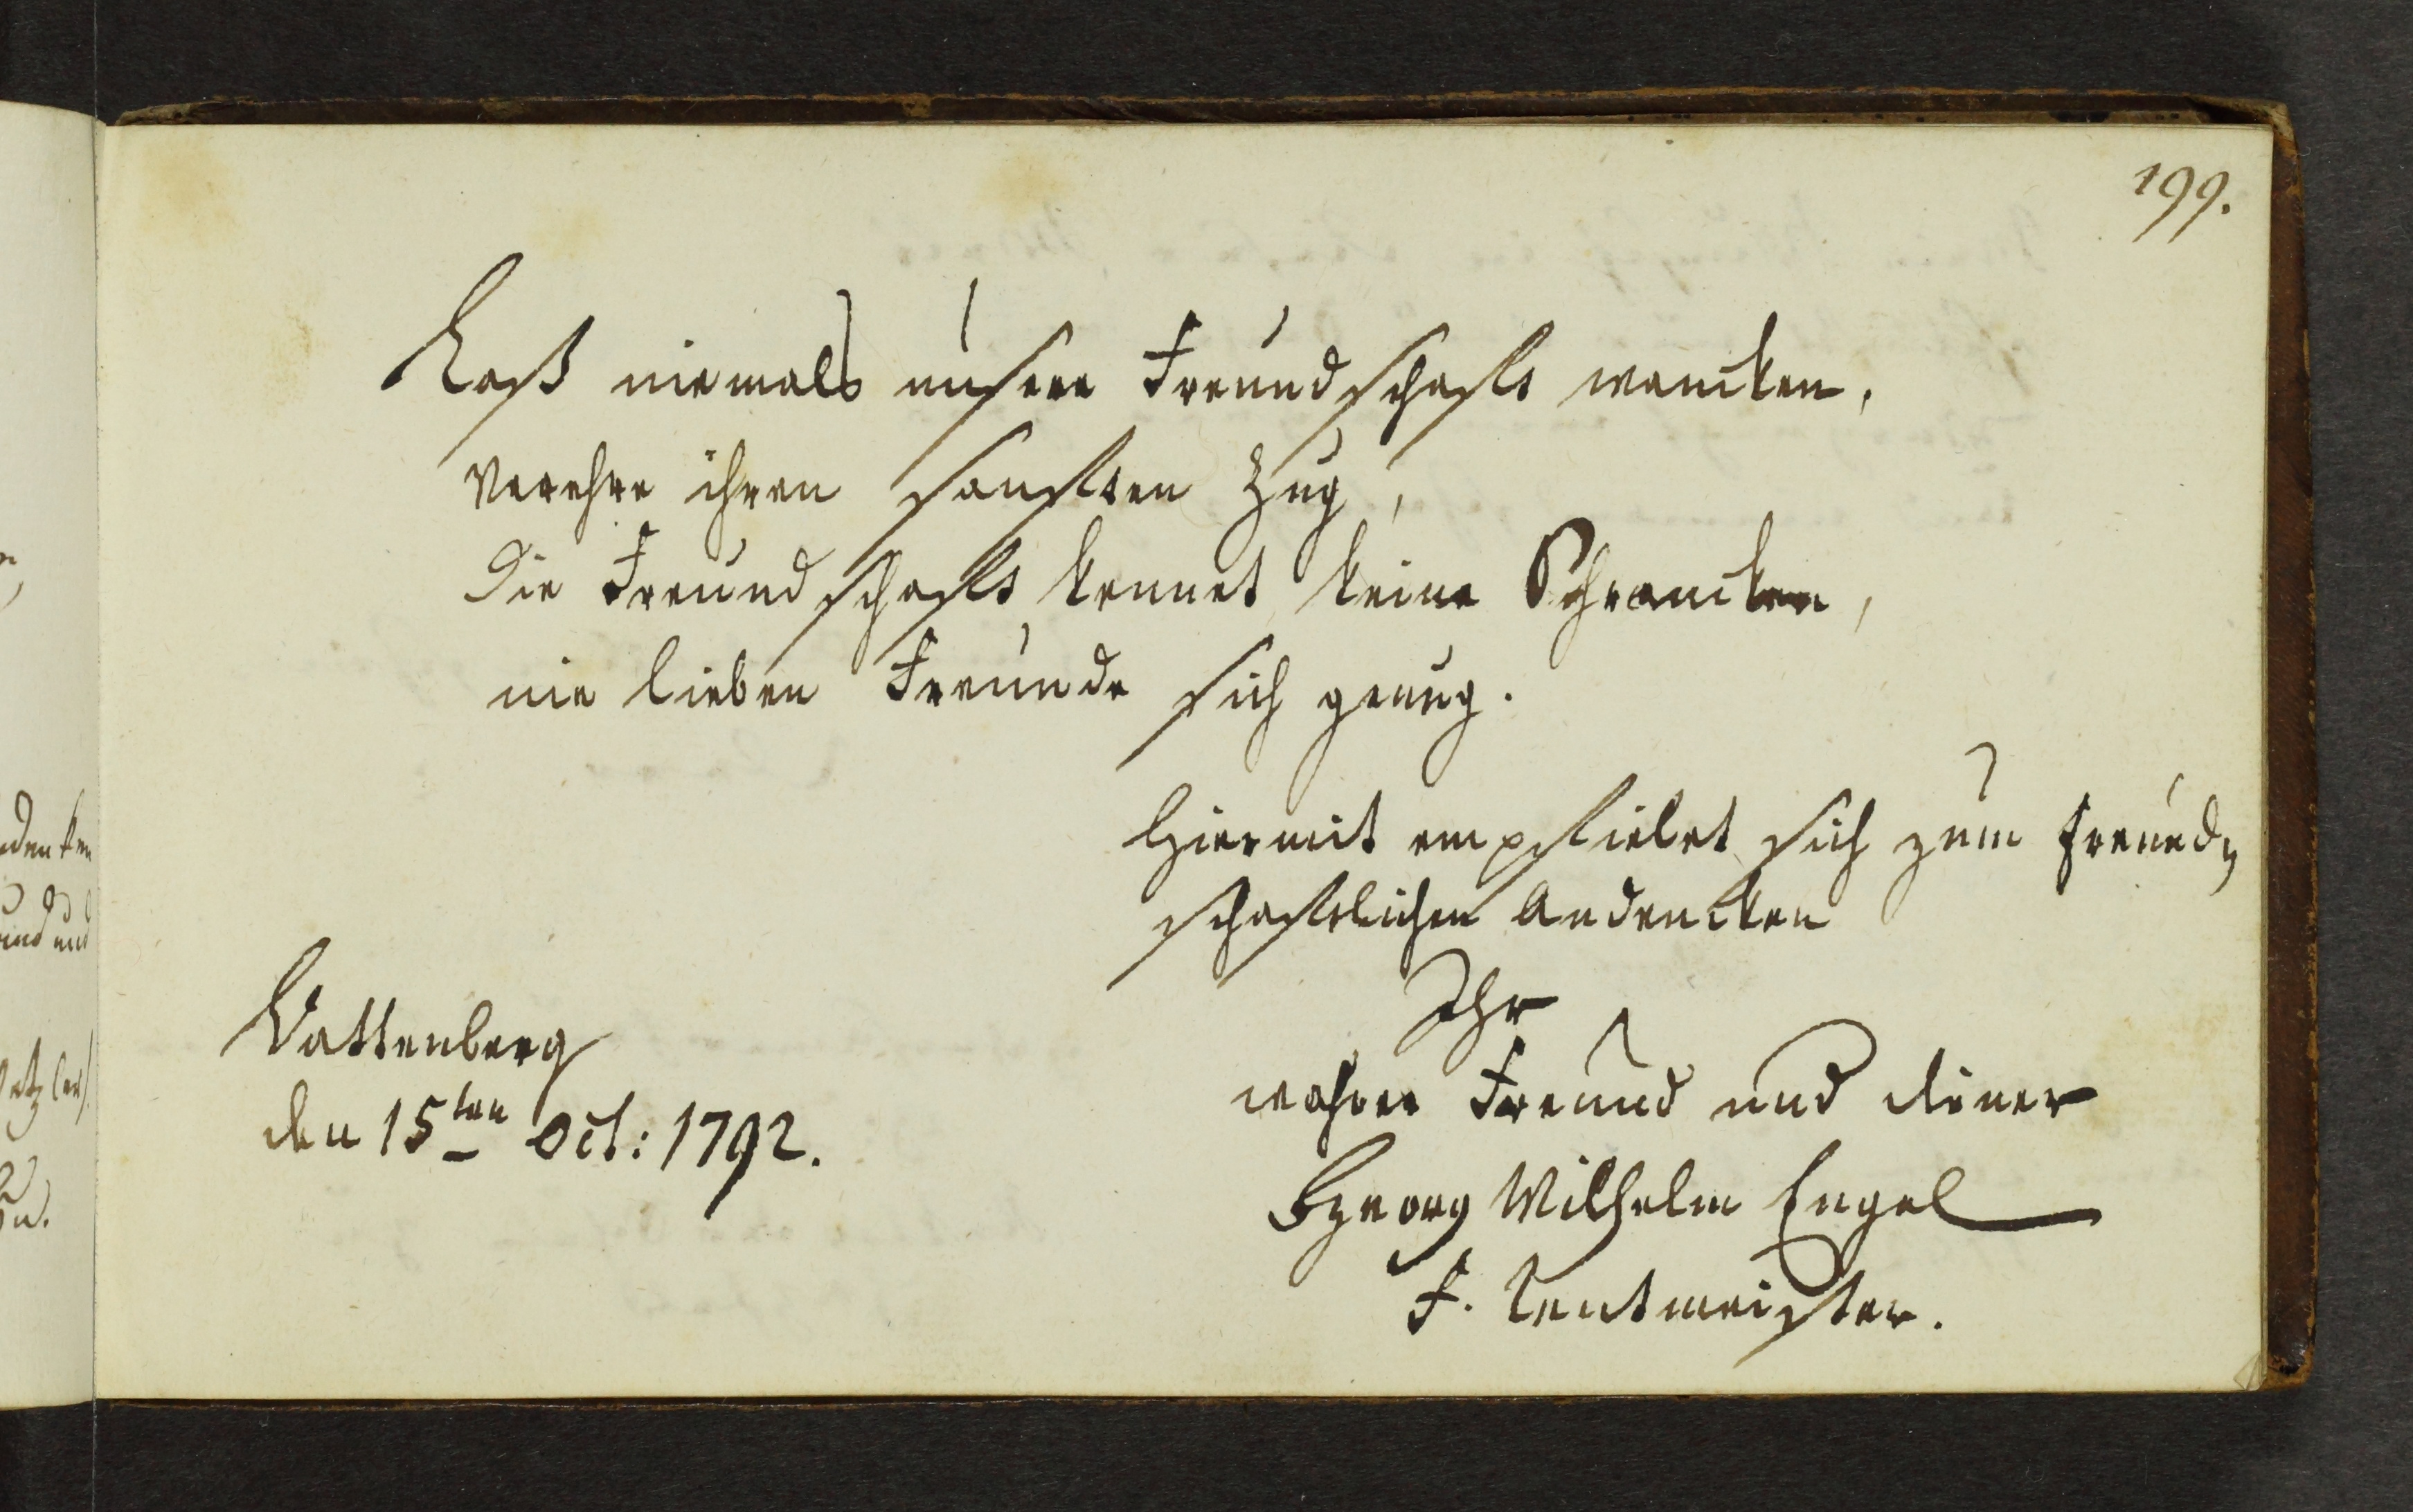 199.
Laß niemals unsere Freundschaft wancken,
verehre ihren sanften Zug,
die Freundschaft kennet keine Schrancken,
nie lieben Freunde sich genug.
hiermit empfielet sich zum freund-
schaftlichen Andencken
Ihr
wahrer Freund und diener
Georg Wilhelm Engel
F. Rentmeister.
Battenberg
den 15ten Oct: 1792.